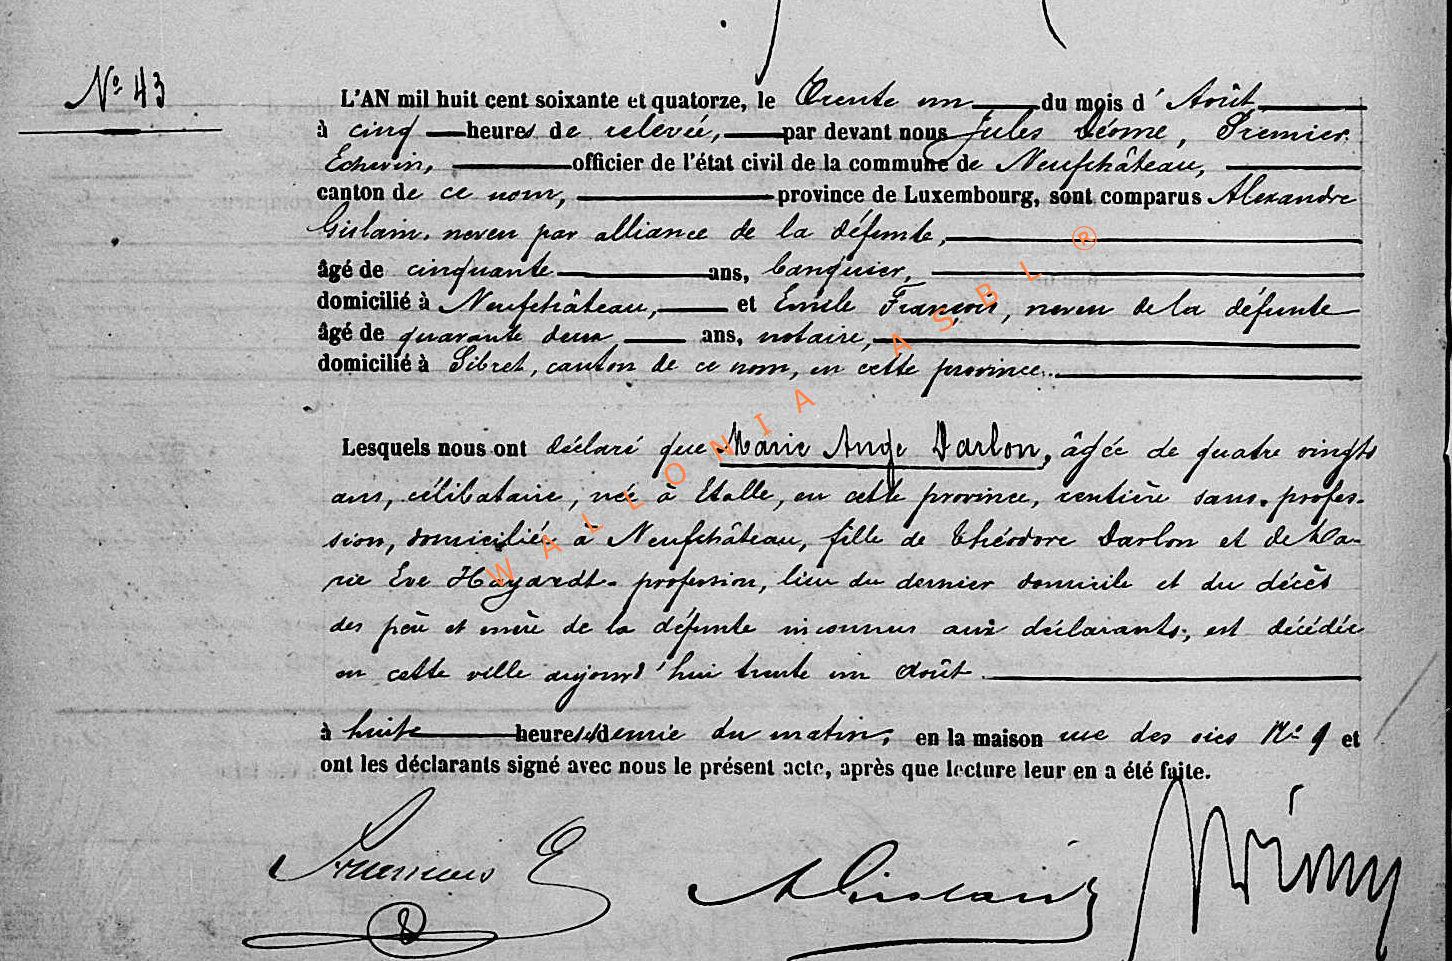 N° 43
L'AN mil huit cent soixante et quatorze, le Trente un du mois d'Août
à cinq heures de relevée, par devant nous Jules Déome, Premier
Echevin, officier de l'état civil de la commune de Neufchâteau,
canton de ce nom, province de Luxembourg, sont comparus Alexandre
Gislain, neveu par alliance de la défunte,
âgé de cinquante ans, banquier,
domicilié à Neufchâteau, et Emile François, neveu de la défunte
âgé de quarante deux ans, notaire,
domicilié à Sibret, canton de ce nom, en cette province.
Lesquels nous ont déclaré que Marie Ange Darlon, âgée de quatre vingts
ans, célibataire, née à Etalle, en cette province, rentière sans profes-
sion, domiciliée à Neufchâteau, fille de Théodore Darlon et de Ma-
rie Eve Hayardt. profession, lieu du dernier domicile et du décès
des père et mère de la défunte inconnus aux déclarants, est décédée
en cette ville aujourd'hui trente un août
à huit heures et demie du matin, en la maison rue des N° 9 et
ont les déclarants signé avec nous le présent acte, après que lecture leur en a été faite.
François E
A Gislain
WALLONIA ASBL ®